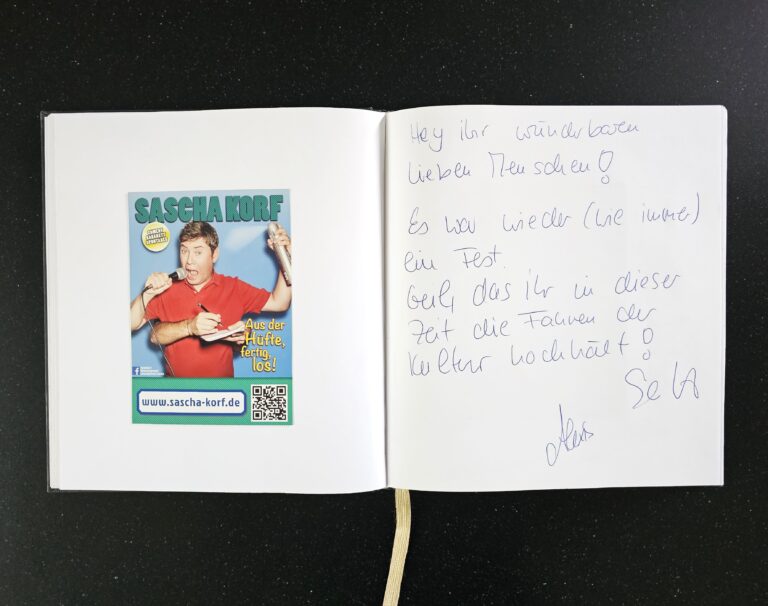 SASCHA KORF
COMEDY
KABARETT
SPONTANES
Aus der
Hüfte,
fertig,
los!
www.sascha-korf.de
Hey ihr wunderbaren
lieben Menschen!
Es war wieder (wie immer)
ein Fest.
Geil, das ihr in dieser
Zeit die Fahnen der
Kultur hochhält!